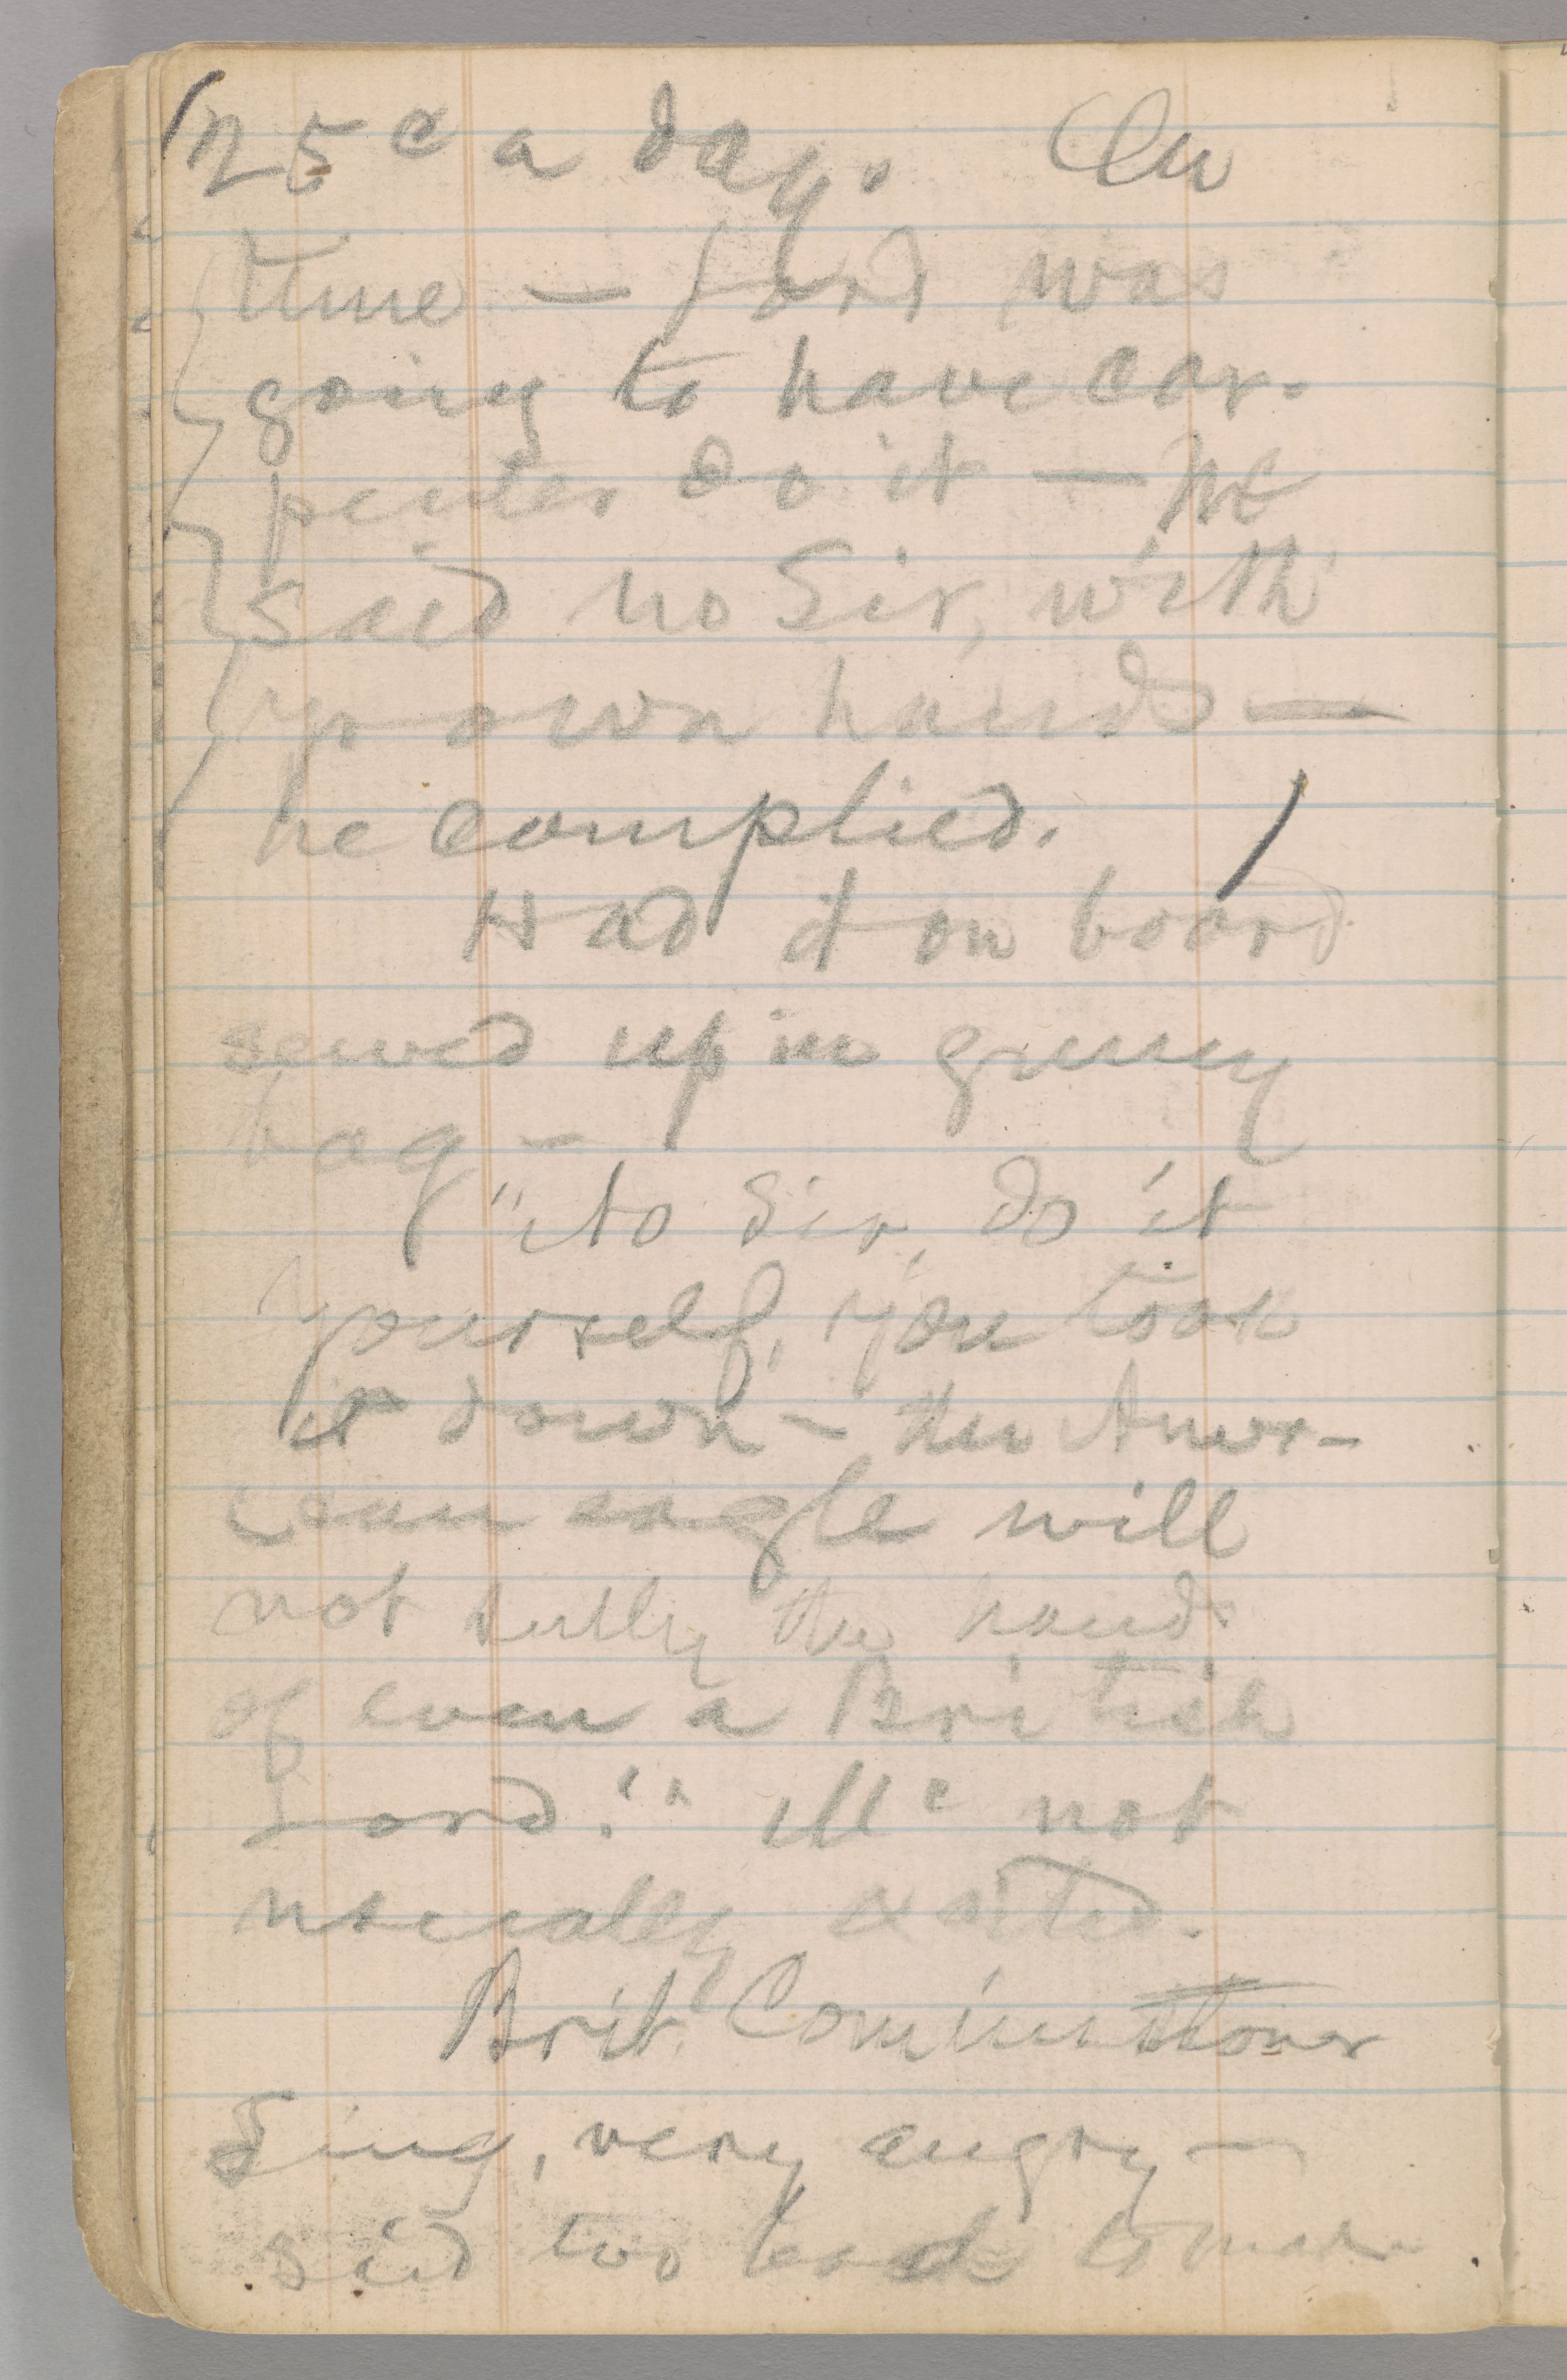 25c a day. On
time — Lord was
going to have car-
penter do it — Mc
said no Sir, with
yr own hands —
he complied.
Had it on board
sewed up in gunny
bag —
"No Sir, do it
yourself, you took
it down — the Amer-
ican eagle will
not sully the hands
of even a British
Lord." Mc not
socially exited.
Brit. Commissioner
very angry —
said too bad to make